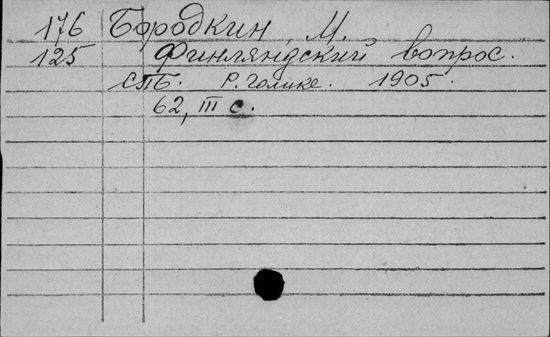 176 Бородкин, М.
125 Финляндский вопрос.
СПБ. Р. Голике. 1905.
62, III с.